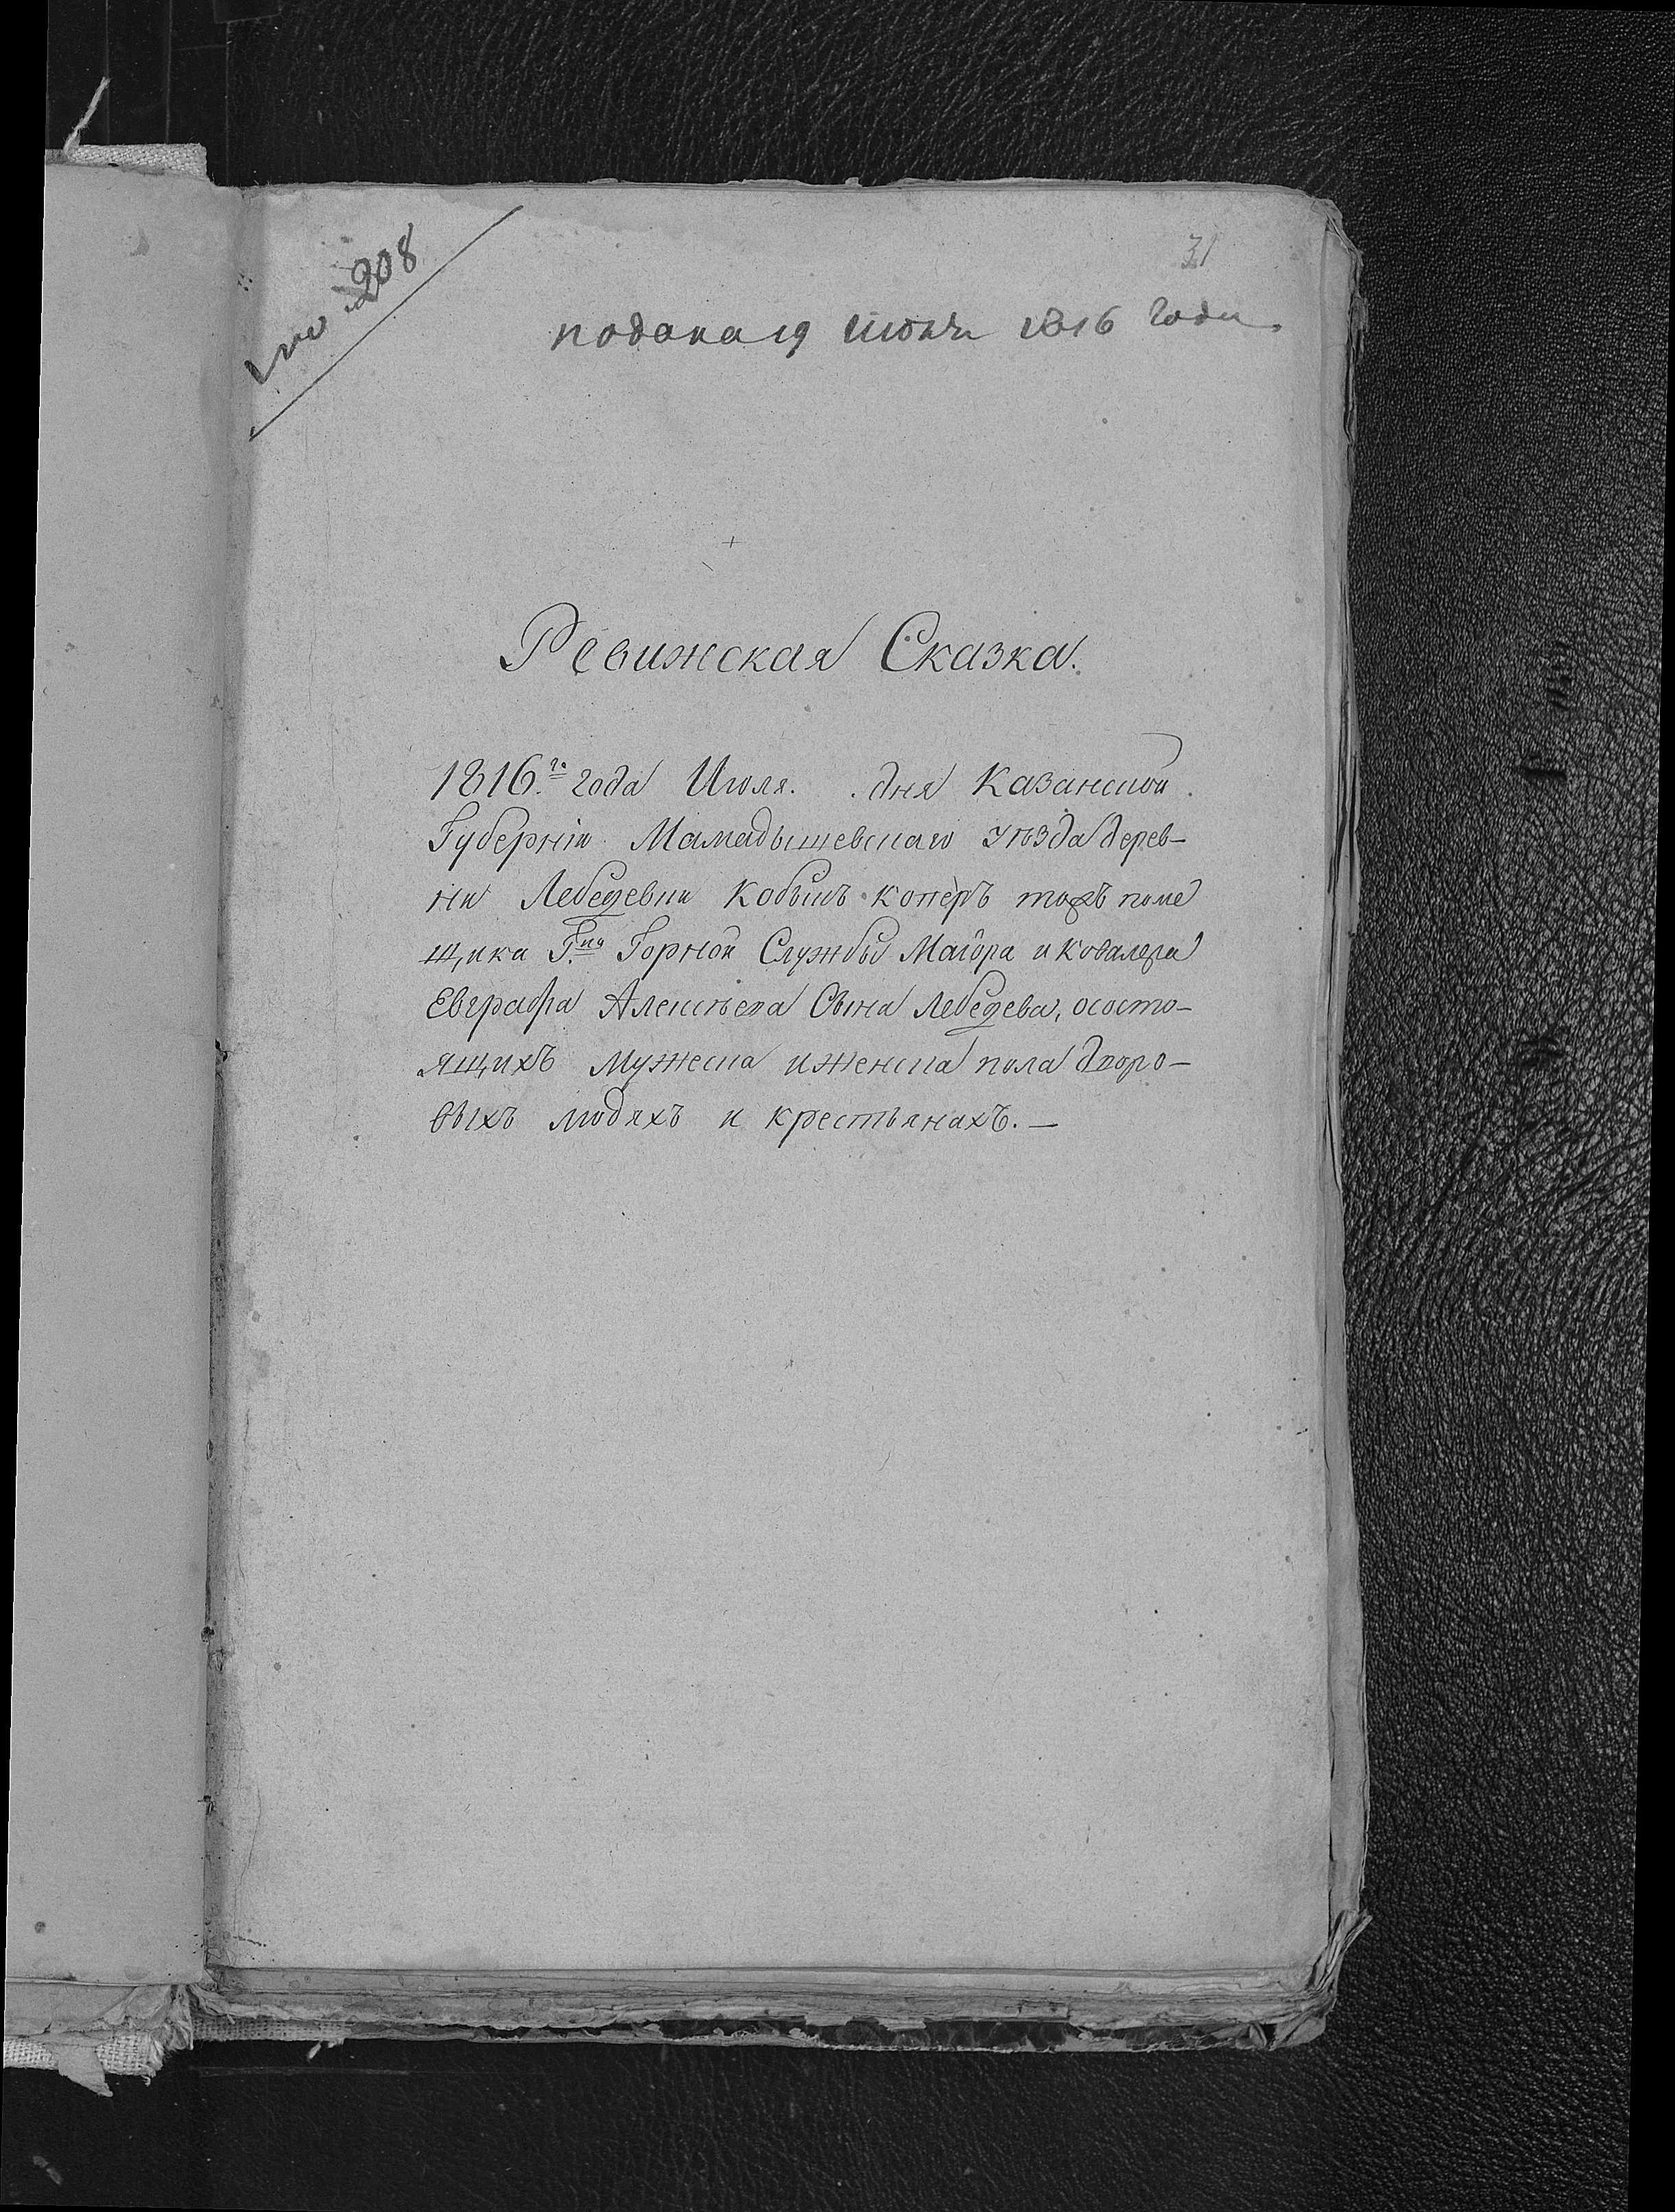 по 208
31
подана 19 июня 1816 года
Ревижская Сказка.
1816.го года Июля. . дня Казанской
Губерніи Мамадышевскаго уѣзда дерев-
ни Лебедевки Кобыкъ коперъ тожъ поме
щика Г.на Горной Службы Маіора и Ковалера
Евграфа Алексѣева Сына Лебедева, ососто-
ящихъ мужеска и женска пола дворо-
выхъ людяхъ и крестьянахъ.—